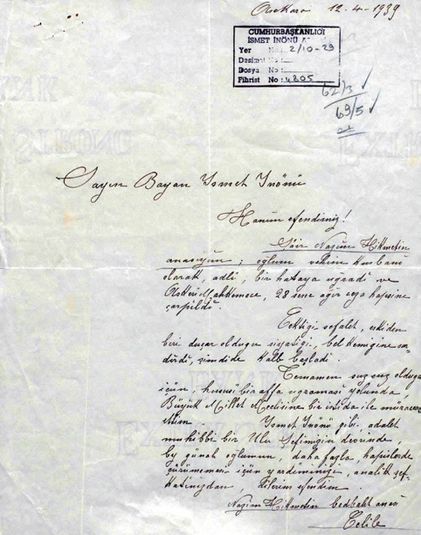 Ankara 12.4-1939
CUMHURBAŞKANLIĞI
İSMET İNÖNÜ A
Yer No: 2/10-29
Desimal No:
Dosya No:
Fihrist No: 4805
62/3
69/5
Sayın Bayan İsmet İnönü
Hanım efendimiz!
Şâir Nazım Hikmetin
anasıyım; oğlum vehim kurbanı
olarak adlî, bir hataya uğradı ve
Askerî Mahkemece, 28 sene ağır ceza hapsine
çarpıldı.
Çektiği sefalet, eskiden
beri duçar olduğu siyatiği, bel kemiğine
şimdide kalb başladı.
Tamamen suçsuz olduğu
için, hususî bir affa uğraması yolunda,
Büyük Millet Meclisine bir istida ile müracaat
ettim İsmet İnönü gibi adalet
muhibbi bir Ulu Şefimizin devrinde,
bî günah oğlumun, daha fazla, hapislerde
çürümemesi için yardımınızı, analık şef-
katinizden dilerim efendim.
Nazım Hikmetin bedbaht anası
Celile